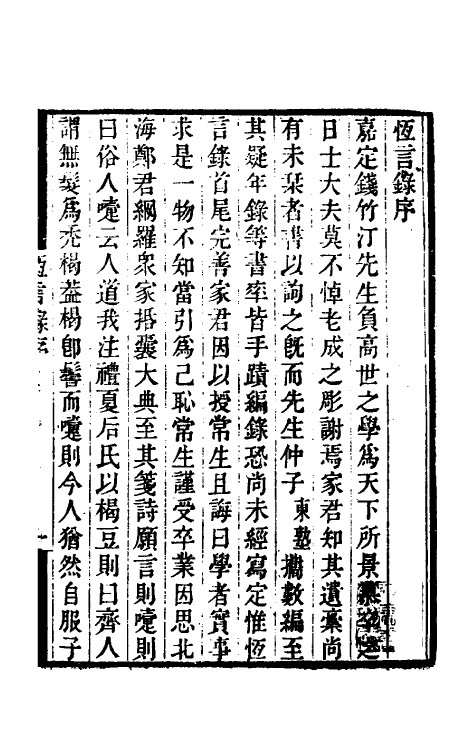 恆言錄序
嘉定錢竹汀先生負高世之學爲天下所景
日士大夫莫不悼老成之彫謝焉家君知其遺稾尚
有未栞者書以詢之旣而先生仲子東塾攟數編至
其疑年錄等書率皆手蹟編錄恐尚未經寫定惟恆
言錄首尾完善家君因以授常生且誨曰學者實事
求是一物不知當引爲己恥常生謹受卒業因思北
海鄭君綱羅衆家捂襲大典至其箋詩願言則嚏則
曰俗人嚏云人道我注禮夏后氏以楬豆則曰齊人
謂無髮爲禿楬葢楬卽鬜而嚏則今人猶然自服子
恆言錄序